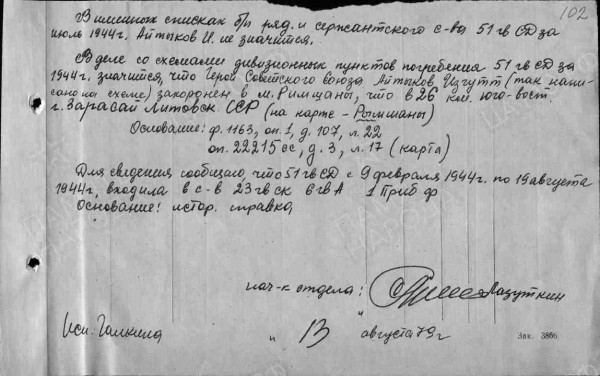 102
В именных списках б/п ряд. и сержантского с-ва 51 гв СД за
июль 1944г. Айтыков И. не значится.
В деле со схемами дивизионных пунктов погребения 51 гв СД за
1944г. значится, что Герой Советского Союза Айтыков Изгутт (так напи-
сано на схеме) захоронен в м. Римшаны, что в 26 км. юго-вост.
г. Зарасай Литовск. ССР (на карте - Рымшаны)
Основание: ф. 1163, оп. 1, д. 107, л. 22
оп. 22215сс, д. 3, л. 17 (карта)
Для сведения сообщаю, что 51 гв СД с 9 февраля 1944г. по 19 августа
1944г. входила в с-в 23 гв ск 6 гв А 1 Приб ф
Основание: истор. справка,
нач-к отдела: Лазуткин
Исп. Галкина
" 13 " августа 79г
Зак. 3866